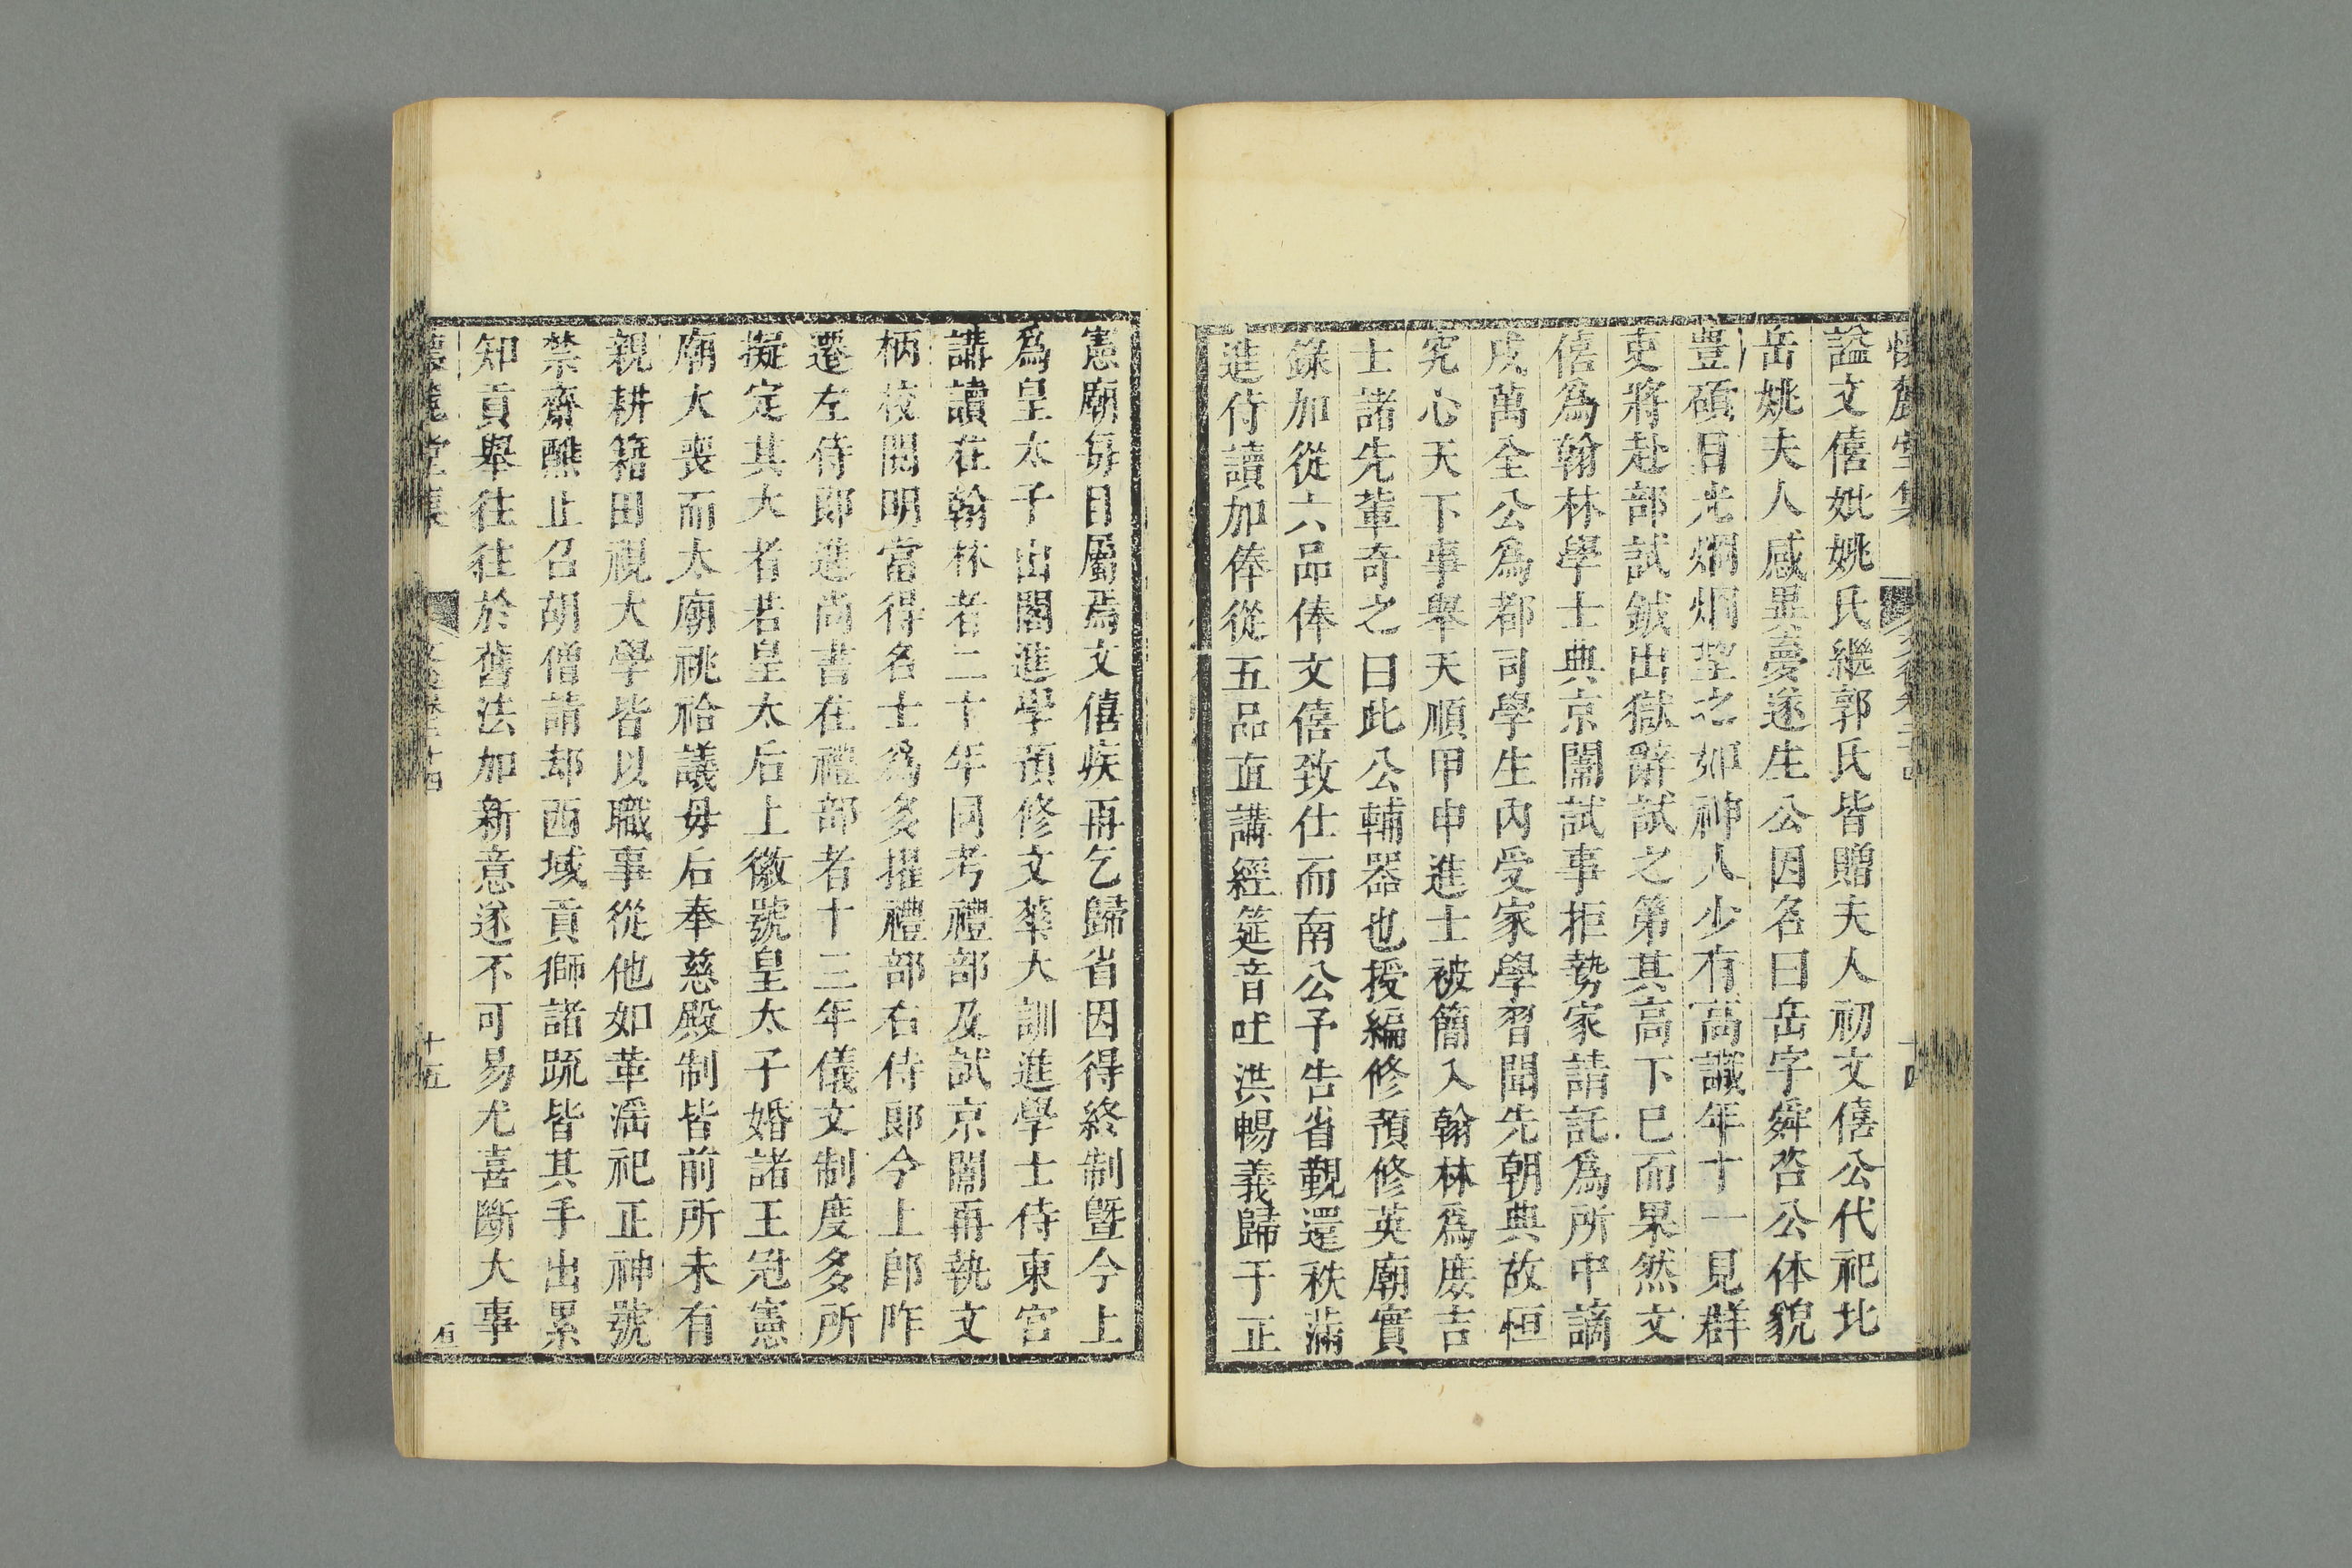 謚文僖妣姚氏繼郭氏皆贈夫人初文僖公代祀北
岳姚夫人感異夢遂生公因名曰岳字舜咨公体貌
豊碩目光烱烱望之如神人少有高識年十一見群
吏將赴部試鉞出獄辭試之第其高下巳而果然文
僖爲翰林學士典京闈試事拒勢家請託爲所中謫
戍萬全公爲都司學生內受家學習聞先朝典故恒
究心天下事舉天順甲申進士被簡入翰林爲庶吉
士諸先輩奇之曰此公輔器也授編修預修英廟實
錄加從六品俸文僖致仕而南公予告省覲還秩滿
進侍讀加俸從五品直講經筵音吐洪暢義歸于正
憲廟每目屬焉文僖疾再乞歸省因得終制曁今上
爲皇太子出閣進學預修文華大訓進學士侍東宮
講讀在翰林者二十年同考禮部及試京闈再執文
柄校閱明當得名士爲多擢禮部右侍郎今上卽阼
遷左侍郎進尚書在禮部者十三年儀文制度多所
擬定其大者若皇太后上徽號皇太子婚諸王冠憲
廟大喪而太廟祧祫議毋后奉慈殿制皆前所未有
親耕籍田視大學皆以職事從他如革滛祀正神號
禁齋醮止召胡僧請却西域貢獅諸䟽皆其手出累
知貢舉往往於舊法加新意遂不可易尤喜斷大事
十五